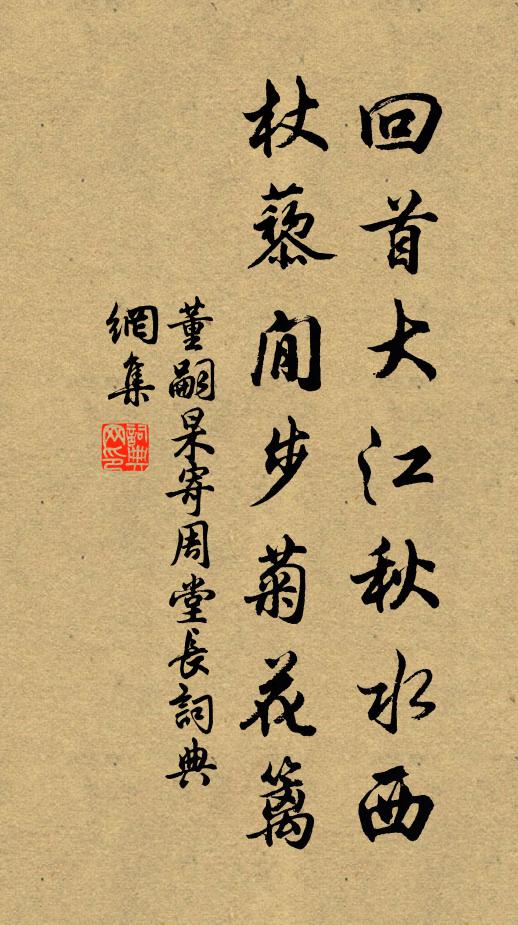 回首大江秋水西
杖藜閒步菊花籬
董嗣杲寄周堂長詞典
網集
詞典
网印